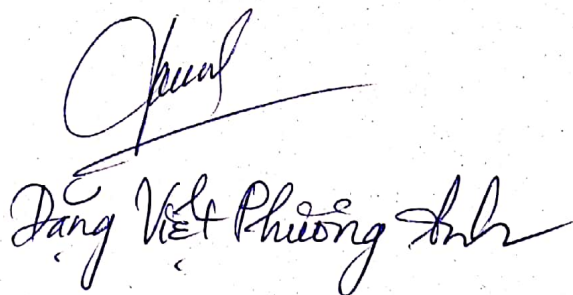 Đặng Việt Phương Anh